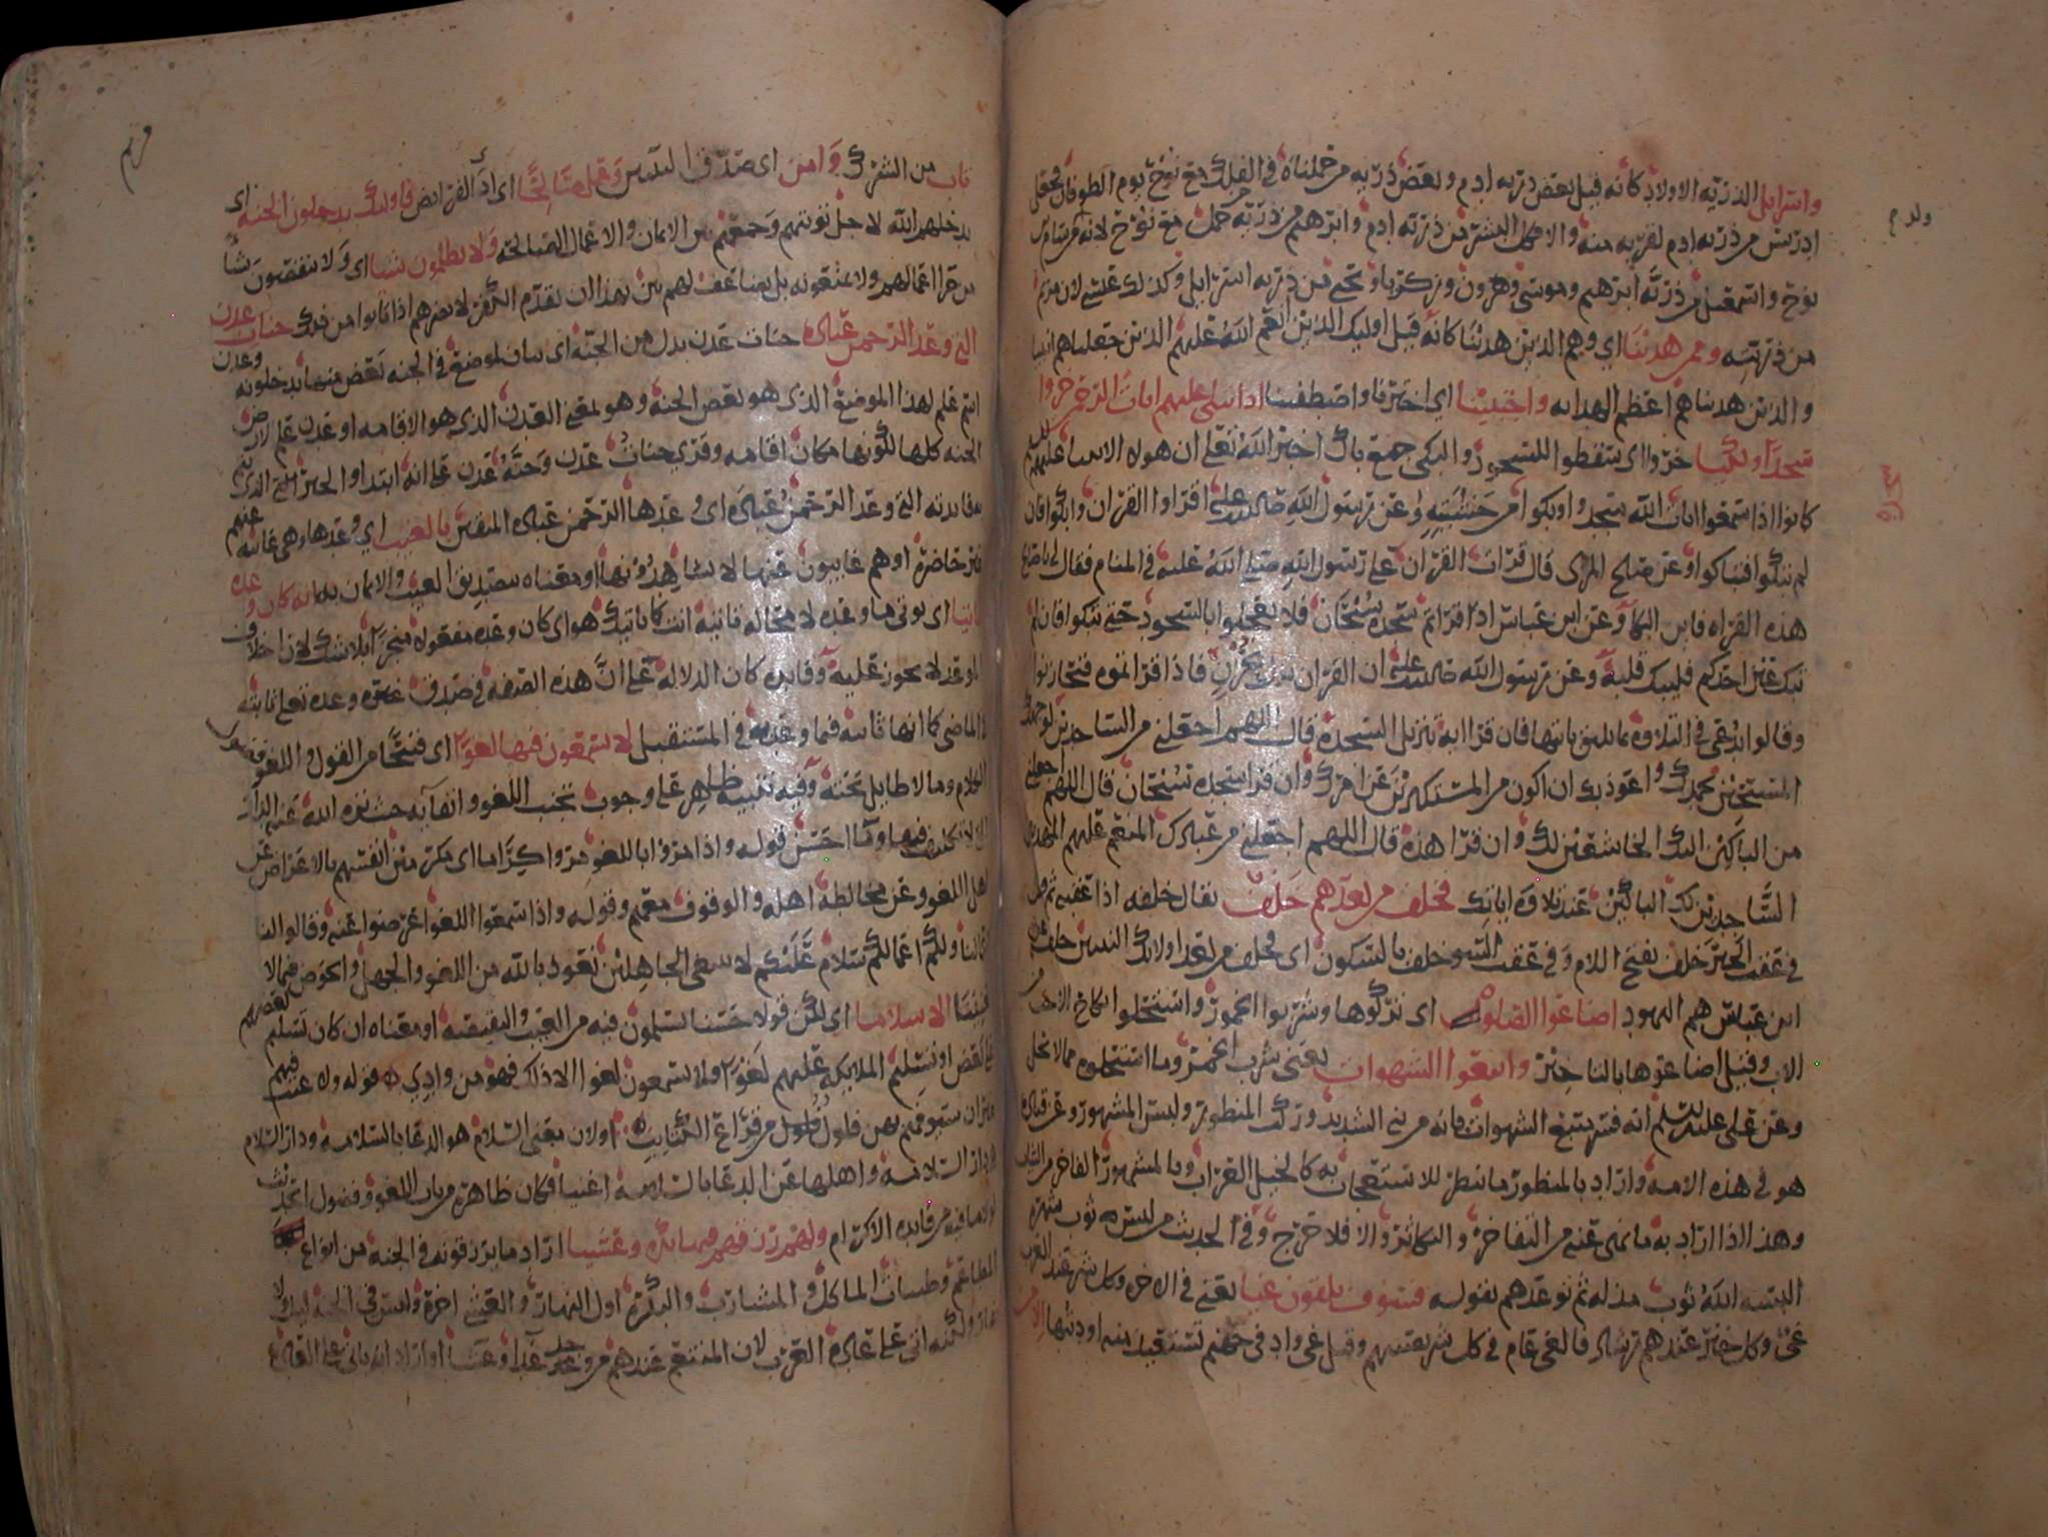 واسرايل الذريه الاولاد كانه قيل بعض ذريه ادم وبعض ذريه من حملناه في الفلك مع نوح يوم الطوفان فجعل
ولد م
ادريس من ذريه ادم لقربه منه والا فكل البشر من ذريه ادم وابرهيم من ذريه حمل مع نوح لانه من سام بن
نوح واسمعيل من ذريه ابرهيم وموسى وهرون وزكريا ويحيى من ذريه اسرايل وكذلك عيسى لان مريم
من ذريته وممن هدينا اي وهم الذين هدينا كانه قيل اوليك الذين انعم الله عليهم الذين جعلناهم انبيا
والذين هديناهم اعظم الهدايه واجتبينا اي اخترنا واصطفينا اذا تتلى عليهم ايات الرحمن خروا
سجدا وبكيا خروا اي سقطوا للسجود والبكي جمع باك اخبر الله تعلى ان هولا الانبيا عليهم
كانوا اذا سمعوا ايات الله سجدوا وبكوا من خشيته وعن رسول الله اقراوا القران وابكوا فان
سجده
لم تبكوا فتباكوا وعن صلح المري قال قرات القران على رسول الله صلى الله عليه في المنام فقال لي يا صلح
هذه القراه فاين البكا وعن ابن عباس اذا قراتم سجده سبحان فلا تعجلوا بالسجود حتى تبكوا فان لم
تبك عين احدكم فليبك قلبه وعن رسول الله ان القران نزل بحزن فاذا قراتموه فتحازنوا
وقالوا يدعى في التلاوه بما يليق باياتها فان قرا ايه تنزيل السجده قال اللهم اجعلني من الساجدين لوجهك
المسبحين بحمدك واعوذ بك ان اكون من المستكبرين عن امرك وان قرا سجده سبحان قال اللهم اجعلني
من الباكين اليك الخاشعين لك وان قرا هذه قال اللهم اجعلني من عبادك المنعم عليهم المهديين
الساجدين لك الباكين عند تلاوه اياتك فخلف من بعدهم خلف يقال خلفه اذا عقبه ثم قيل
في عقب الخير خلف بفتح اللام وفي عقب السو خلف بالسكون اي فخلف من بعد اولايك النبيين خلف عن
ابن عباس هم اليهود اضاعوا الصلوه اي تركوها وشربوا الخمور واستحلوا نكاح الاخت من
الاب وقيل اضاعوها بالتاخير واتبعوا الشهوات يعنى شرب الخمر وما استحلوه مما لا يحل
وعن على عليه السلم انه فسر يتبع الشهوات بانه من بنى الشديد وركب المنظور ولبس المشهور وعن قتاده
هو في هذه الامه واراد بالمنظور ما ينظر للاستعجاب به كالخيل العراب وبالمشهور الفاخر من الثياب
وهذا اذا اراد به ما نهى عنه من التفاخر والتكاثر والا فلا حرج وفي الحديث من لبس ثوب شهره
البسه الله ثوب مذله ثم توعدهم بقوله فسوف يلقون غيا يعني في الاخره وكل شر عند العرب
غى وكل خير عندهم رشاد فالغى عام في كل شر يصيبهم وقيل غى واد في جهنم تستعيذ منه اوديتها الا من
مريم
تاب من الشرك وامن اى صدق النبيين وعمل صالحا اى ادى الفرايض فاوليك يدخلون الجنه اى
يدخلهم الله لاجل توبتهم وجمعهم بين الايمان والاعمال الصالحه ولا يظلمون شيا اى ولا ينقصون شيا
من جزا اعمالهم ولا يمنعونه بل يضاعف لهم بين بهذا ان تقدم الكفر لا يضرهم اذا تابوا من ذلك جنات عدن
التي وعد الرحمن عباده جنات عدن بدل من الجنه اى بيان لموضع في الجنه بعض منها يدخلونه وعدن
اسم علم لهذا الموضع الذى هو بعض الجنه وهو بمعنى العدن الذى هو الاقامه او عدن علم لارض
الجنه كلها لكونها مكان اقامه وقرى جنات عدن وجنه عدن على انه ابتدا والخبر التى
وعد الرحمن عباده اى وعدها الرحمن عباده المتقين بالغيب اى وعدها وهى غايبه عنهم
غير حاضره او هم غايبون عنها لا يشاهدونها او معناه بتصديق الغيب والايمان به انه كان وعده
ماتيا اى يوتى ما وعده لا محاله فاتيه انت كما ياتيك هو اى كان وعده مفعولا منجزا بلا شك لان اخلاف
الوعد لا يجوز عليه وفايده كان الدلاله على ان هذه الصفه في صدق خبره وعده تعلى ثابته
في الماضى كما انها ثابته فيما وعد به في المستقبل لا يسمعون فيها لغوا اى قبيحا من القول واللغو فضول
الكلام وما لا طايل تحته وفيه تنبيه ظاهر على وجوب تجنب اللغو واتقايه حيث نزه الله عنه الدار
التى لا تكليف فيها وما احسن قوله واذا مروا باللغو مروا كراما اى مكرمين انفسهم بالاعراض عن
اهل اللغو وعن مخالطه اهله والوقوف معهم وقوله واذا سمعوا اللغو اعرضوا عنه وقالوا لنا
اعمالنا ولكم اعمالكم سلام عليكم لا نبتغى الجاهلين نعوذ بالله من اللغو والجهل والخوض فيما لا
يعنينا الا سلاما اى لكن قولا حسنا يسلمون فيه من العيب والنقيصه او معناه ان كان تسليم بعضهم
على بعض او تسليم الملايكه عليهم لغوا ولا يسمعون لغوا الا ذلك فهو من وادى قوله ولا عيب فيهم
غير ان سيوفهم بهن فلول من قراع الكتايب او لان معنى السلام هو الدعا بالسلامه ودار السلام
هى دار السلامه واهلها عن الدعا بالسلامه اغنيا فكان ظاهره من باب اللغو وفضول الحديث
لولا ما فيه من فايده الاكرام ولهم رزقهم فيها بكره وعشيا اراد ما يرزقونه في الجنه من انواع
المطاعم وطيبات الماكل والمشارب والبكره اول النهار والعشى اخره وليس في الجنه ليل ولا
نهار ولكنه اتى على عاده العرب لان المتنعم عندهم من وجد غدا وعشا او اراد انه ياتى على